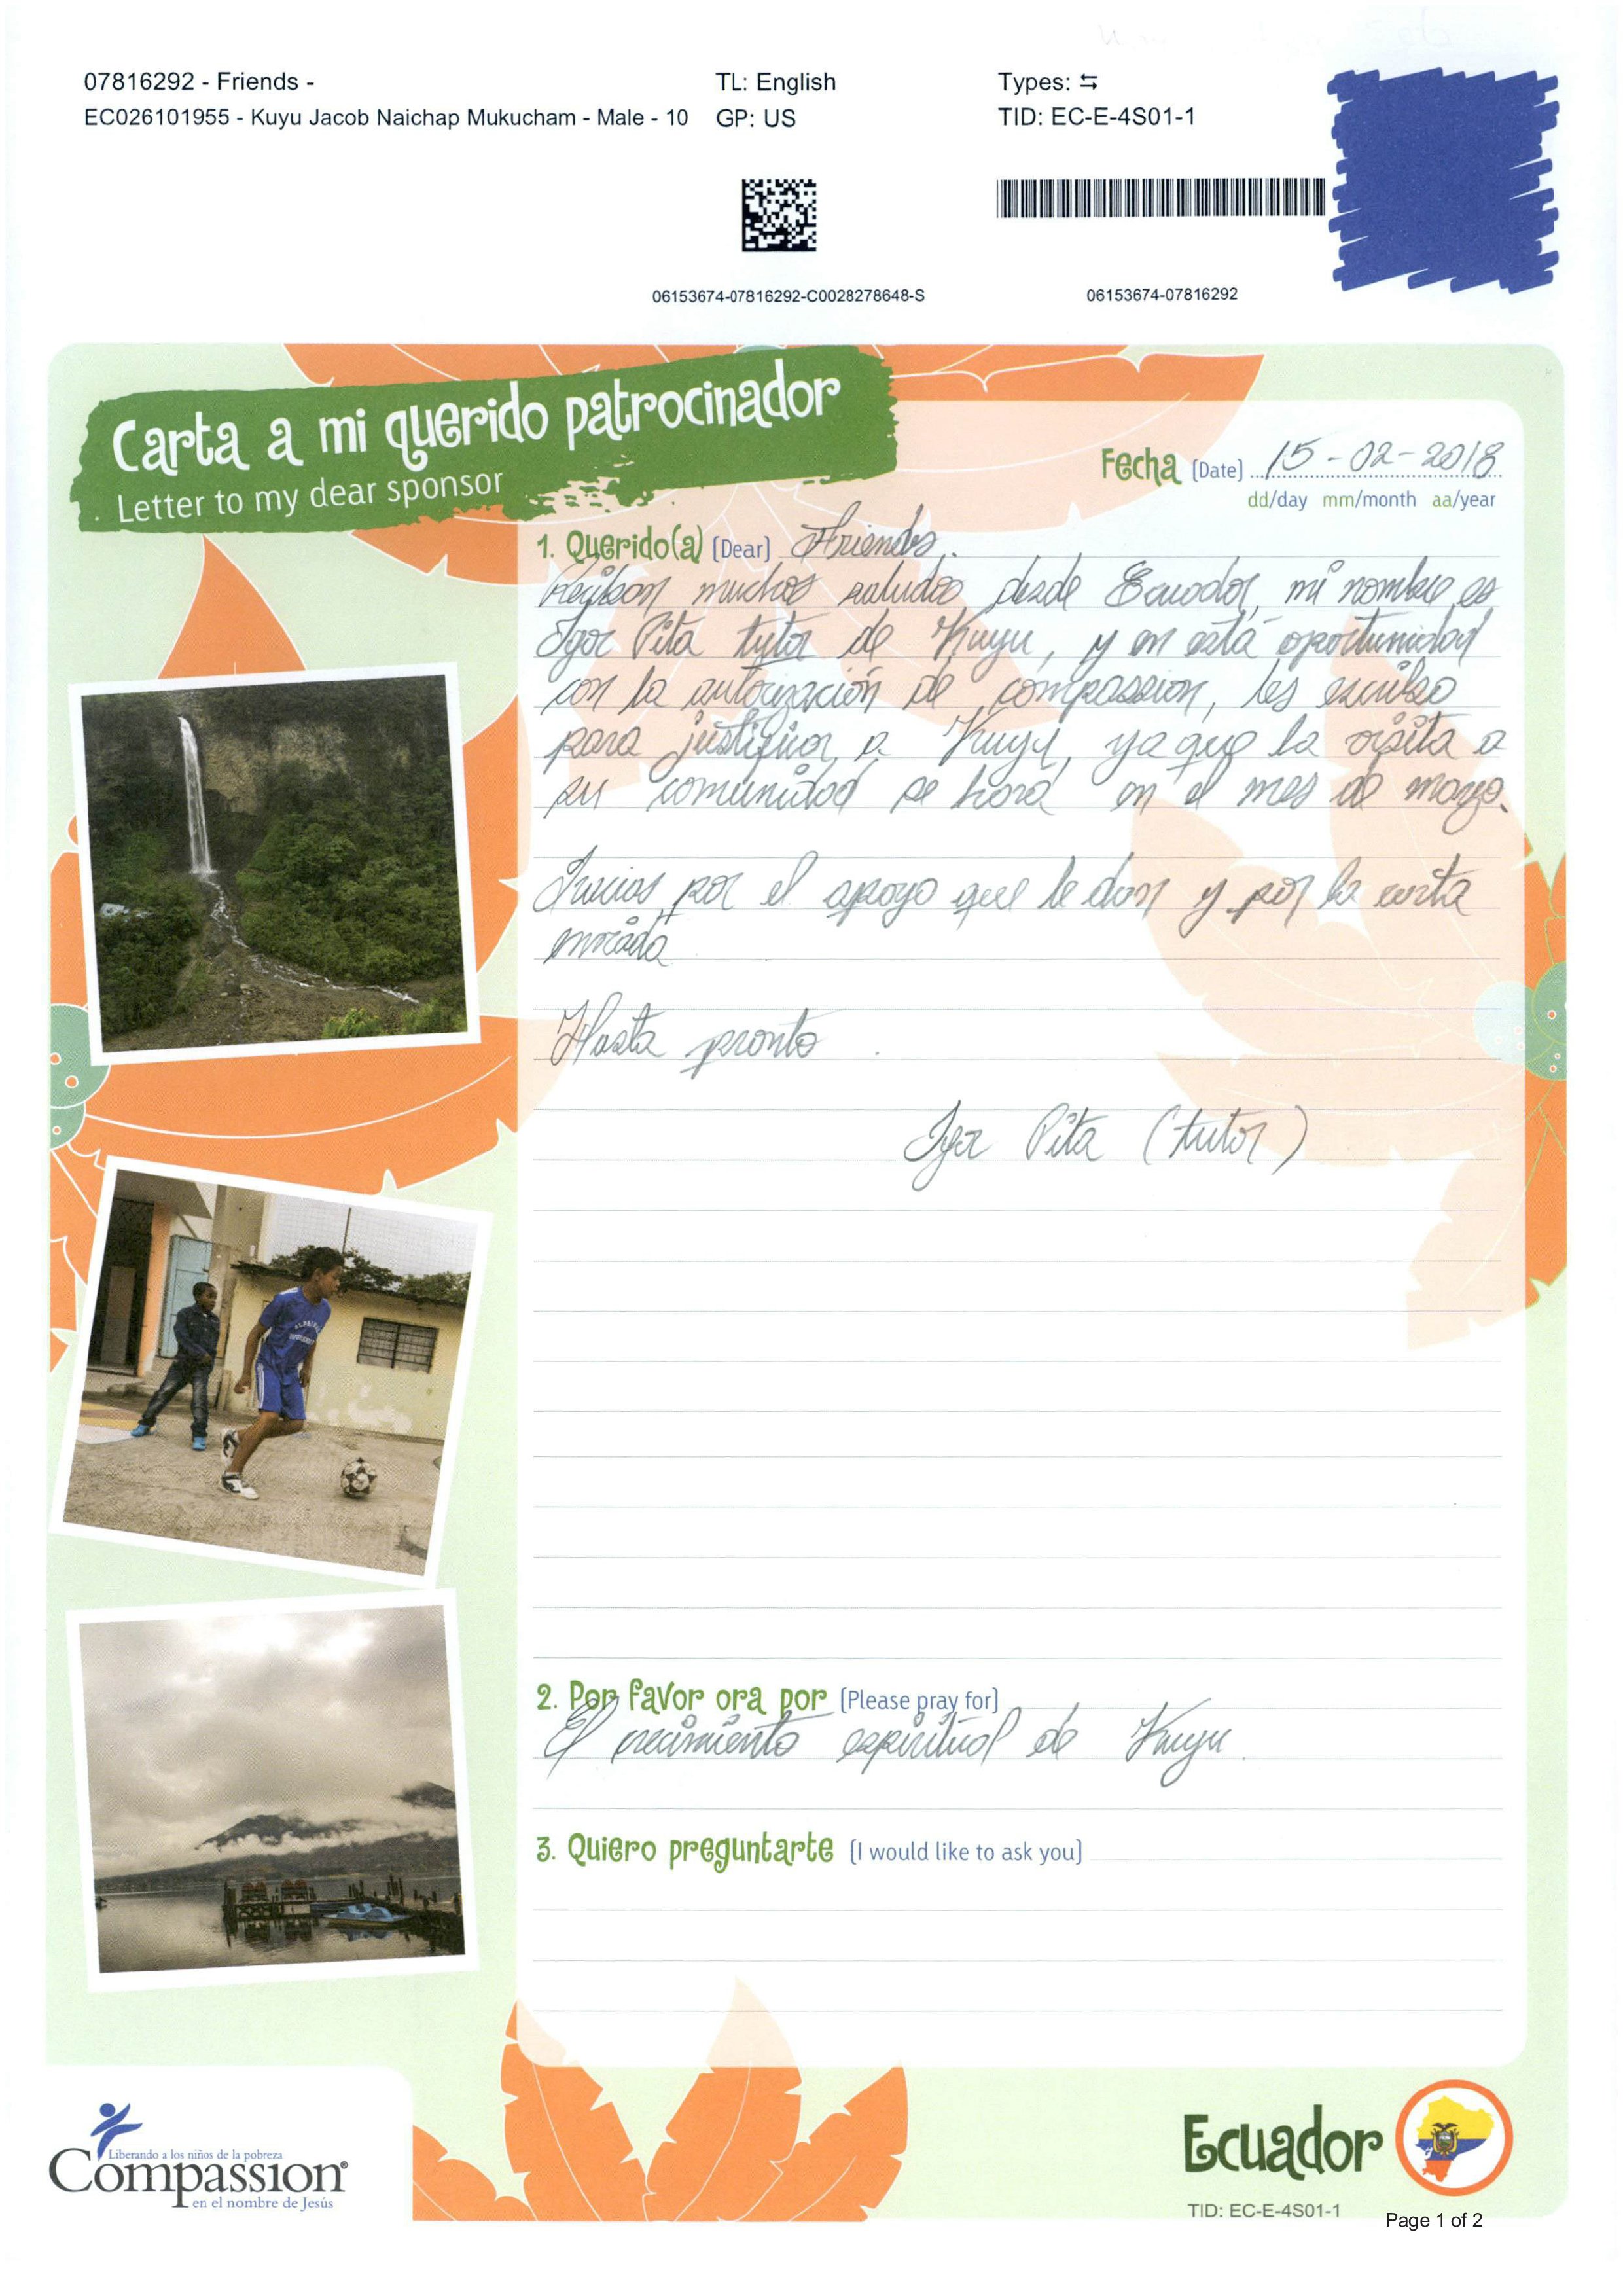 07816292 - Friends -
TL: English
Types: ⇆
EC026101955 - Kuyu Jacob Naichap Mukucham - Male - 10
GP: US
TID: EC-E-4S01-1
06153674-07816292-C0028278648-S
06153674-07816292
Carta a mi querido patrocinador
Letter to my dear sponsor
Fecha (Date) 15-02-2018
dd/day mm/month aa/year
1. Querido(a) (Dear) Friends.
Reciban muchos saludos desde Ecuador, mi nombre es
Igor Pita tutor de Kuyu, y en está oportunidad
con la autorización de compassion, les escribo
para justificar a Kuyu, ya que la visita a
su comunidad se hará en el mes de marzo.
Gracias por el apoyo que le dan y por la carta
enviada
Hasta pronto.
Igor Pita (tutor)
2. Por favor ora por (Please pray for)
El crecimiento espiritual de Kuyu.
3. Quiero preguntarte (I would like to ask you)
Liberando a los niños de la pobreza
Compassion®
en el nombre de Jesús
Ecuador
TID: EC-E-4S01-1
Page 1 of 2